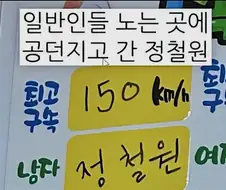 일반인들 노는 곳에
공던지고 간 정철원
최고 150 km/h 최고
구속 구속
남자 정철원 여자